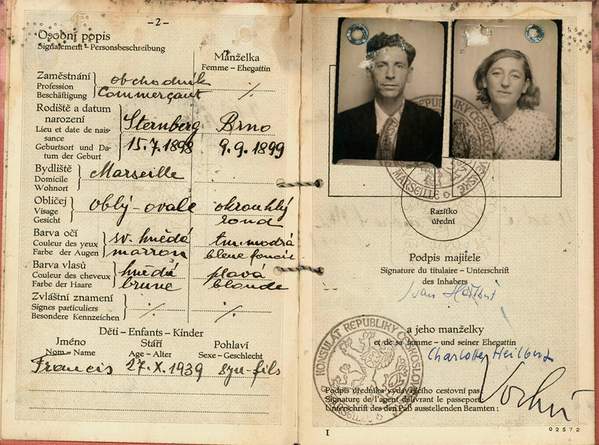 – 2 –
Osobní popis
Signalement - Personsbeschreibung
Manželka
Femme – Ehegattin
Zaměstnání
Profession
Beschäftigung
obchodník
Commerçant
Rodiště a datum
narození
Lieu et date de nais-
sance
Geburtsort und Da-
tum der Geburt
Sternberg Brno
15.7.1898 9.9.1899
Bydliště
Domicile
Wohnort
Marseille
Obličej
Visage
Gesicht
oblý - ovale okrouhlý
rond
Barva očí
Couleur des yeux
Farbe der Augen
sv. hnědá tm. modrá
marron bleue foncée
Barva vlasů
Couleur des cheveux
Farbe der Haare
hnědá plavá
brune blonde
Zvláštní znamení
Signes particuliers
Besondere Kennzeichen
Děti - Enfants - Kinder
Jméno Stáří Pohlaví
Nom – Name Age - Alter Sexe – Geschlecht
Francis 27.X.1939 syn - fils
MARSEILLE
Razítko
úřední
Podpis majitele
Signature du titulaire – Unterschrift
des Inhabers
a jeho manželky
et de sa femme – und seiner Ehegattin
Charlotte Heilbert
KONSULÁT REPUBLIKY ČESKOSLOVENSKÉ
Podpis úředníka vydávajícího cestovní pas
Signature de l'agent délivrant le passeport
Unterschrift des den Paß ausstellenden Beamten:
I
02572